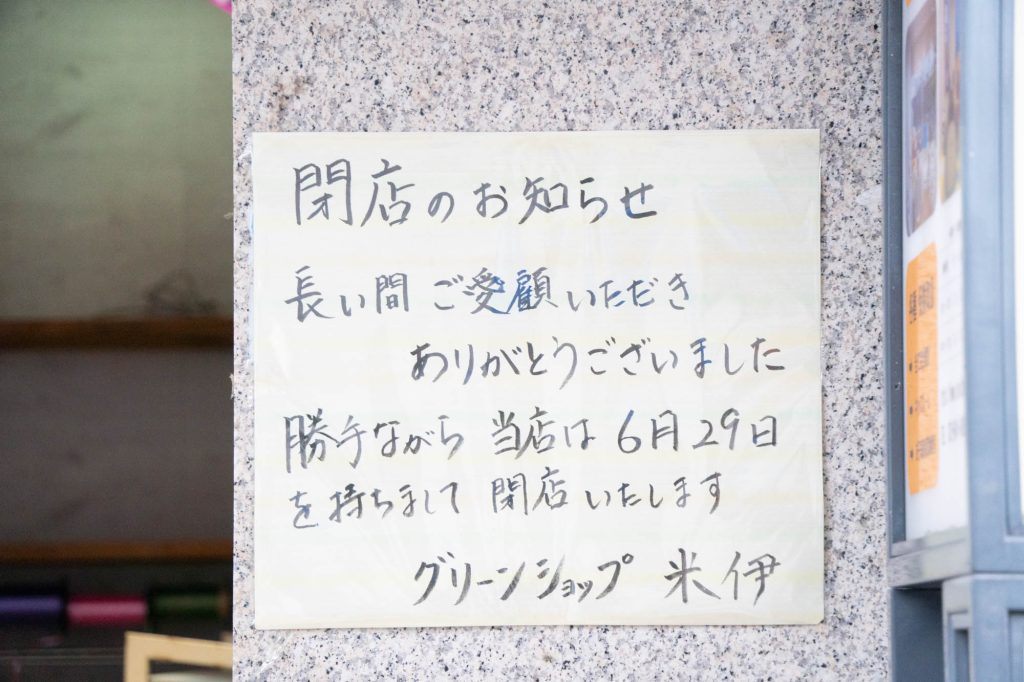 閉店のお知らせ
長い間 ご愛顧いただき
ありがとうございました
勝手ながら 当店は 6月29日
を持ちまして 閉店いたします
グリーンショップ 米伊